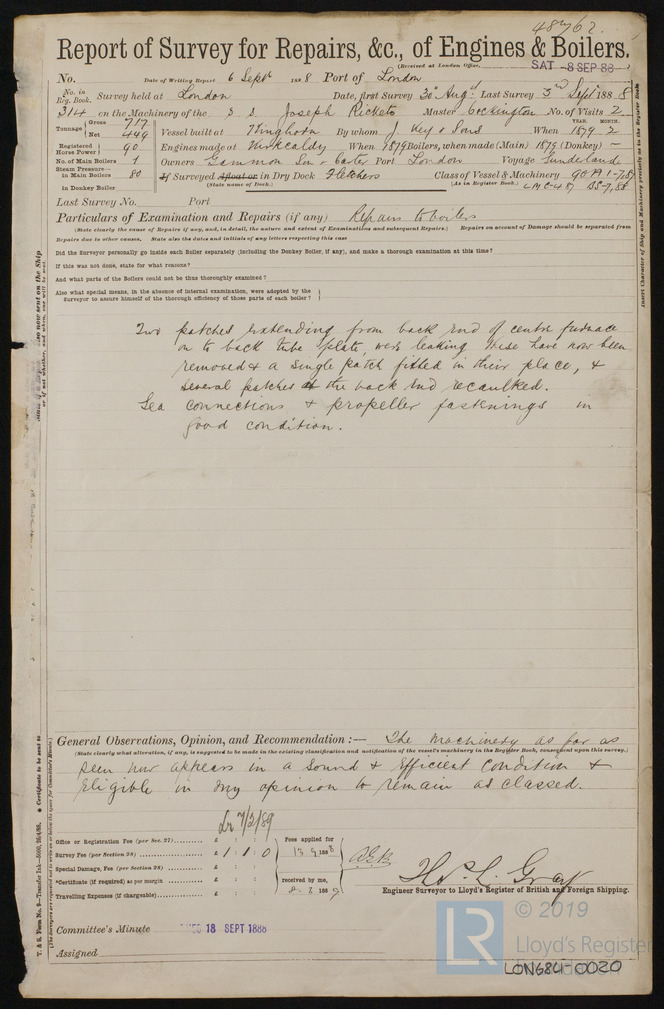 48762.
Report of Survey for Repairs, &c., of Engines & Boilers.
(Received at London Office, SAT -8 SEP 88
No. Date of Writing Report 6 Septr 1888 Port of London
No. in Reg. Book. Survey held at London Date, first Survey 30th Augt Last Survey 3rd Septr 1888
314 on the Machinery of the S S Joseph Rickets Master Cockington No. of Visits 2
Tonnage Gross 717 Net 449 Vessel built at Kinghorn By whom J Key & Sons When YEAR. 1879 MONTH. 2
Registered Horse Power 90 Engines made at Kirkcaldy When 1879 Boilers, when made (Main) 1879 (Donkey) -
No. of Main Boilers 1 Owners Gammon Son & Carter Port London Voyage Sunderland
Steam Pressure— in Main Boilers 80 If Surveyed Afloat or in Dry Dock Fletchers Class of Vessel & Machinery 90A1-7,87
in Donkey Boiler (State name of Dock.) (As in Register Book.) LMC 4 87 BS-7,88
Last Survey No. Port
Particulars of Examination and Repairs (if any) Repairs to boilers
(State clearly the cause of Repairs if any, and, in detail, the nature and extent of Examinations and subsequent Repairs; Repairs on account of Damage should be separated from
Repairs due to other causes. State also the dates and initials of any letters respecting this case
Did the Surveyor personally go inside each Boiler separately (including the Donkey Boiler, if any), and make a thorough examination at this time?
If this was not done, state for what reasons?
And what parts of the Boilers could not be thus thoroughly examined?
Also what special means, in the absence of internal examination, were adopted by the
Surveyor to assure himself of the thorough efficiency of those parts of each boiler?
Two patches extending from back end of centre furnace
on to back tube plate, were leaking these have now been
removed & a single patch fitted in their place, &
several patches at the back end recaulked.
Sea connections & propeller fastnings in
good condition.
General Observations, Opinion, and Recommendation :— The machinery as far as
(State clearly what alteration, if any, is suggested to be made in the existing classification and notification of the vessel's machinery in the Register Book, consequent upon this survey.)
seen now appears in a sound & efficient condition &
eligible in my opinion to remain as classed.
Lr 7/2/89
Office or Registration Fee (per Sec. 27) £ : : Fees applied for
Survey Fee (per Section 28) £ 1 : 1 : 0 13.9.1888
Special Damage, Fee (per Section 28) £ : :
*Certificate (if required) as per margin £ : : received by me,
Travelling Expenses (if chargeable) £ : : 1889
Thos. L. Gray
Engineer Surveyor to Lloyd's Register of British and Foreign Shipping.
Committee's Minute TUES 18 SEPT 1888
Assigned
© 2019
LR Lloyd's Register
Foundation
LON684-0020
Insert Character of Ship and Machinery precisely as in the Register Book
T. & S. Form No. 8—Transfer Ink—5000, 26/4/88.
* Certificate to be sent to
(The Surveyors are requested not to write on or below the space for Committee's Minute.)